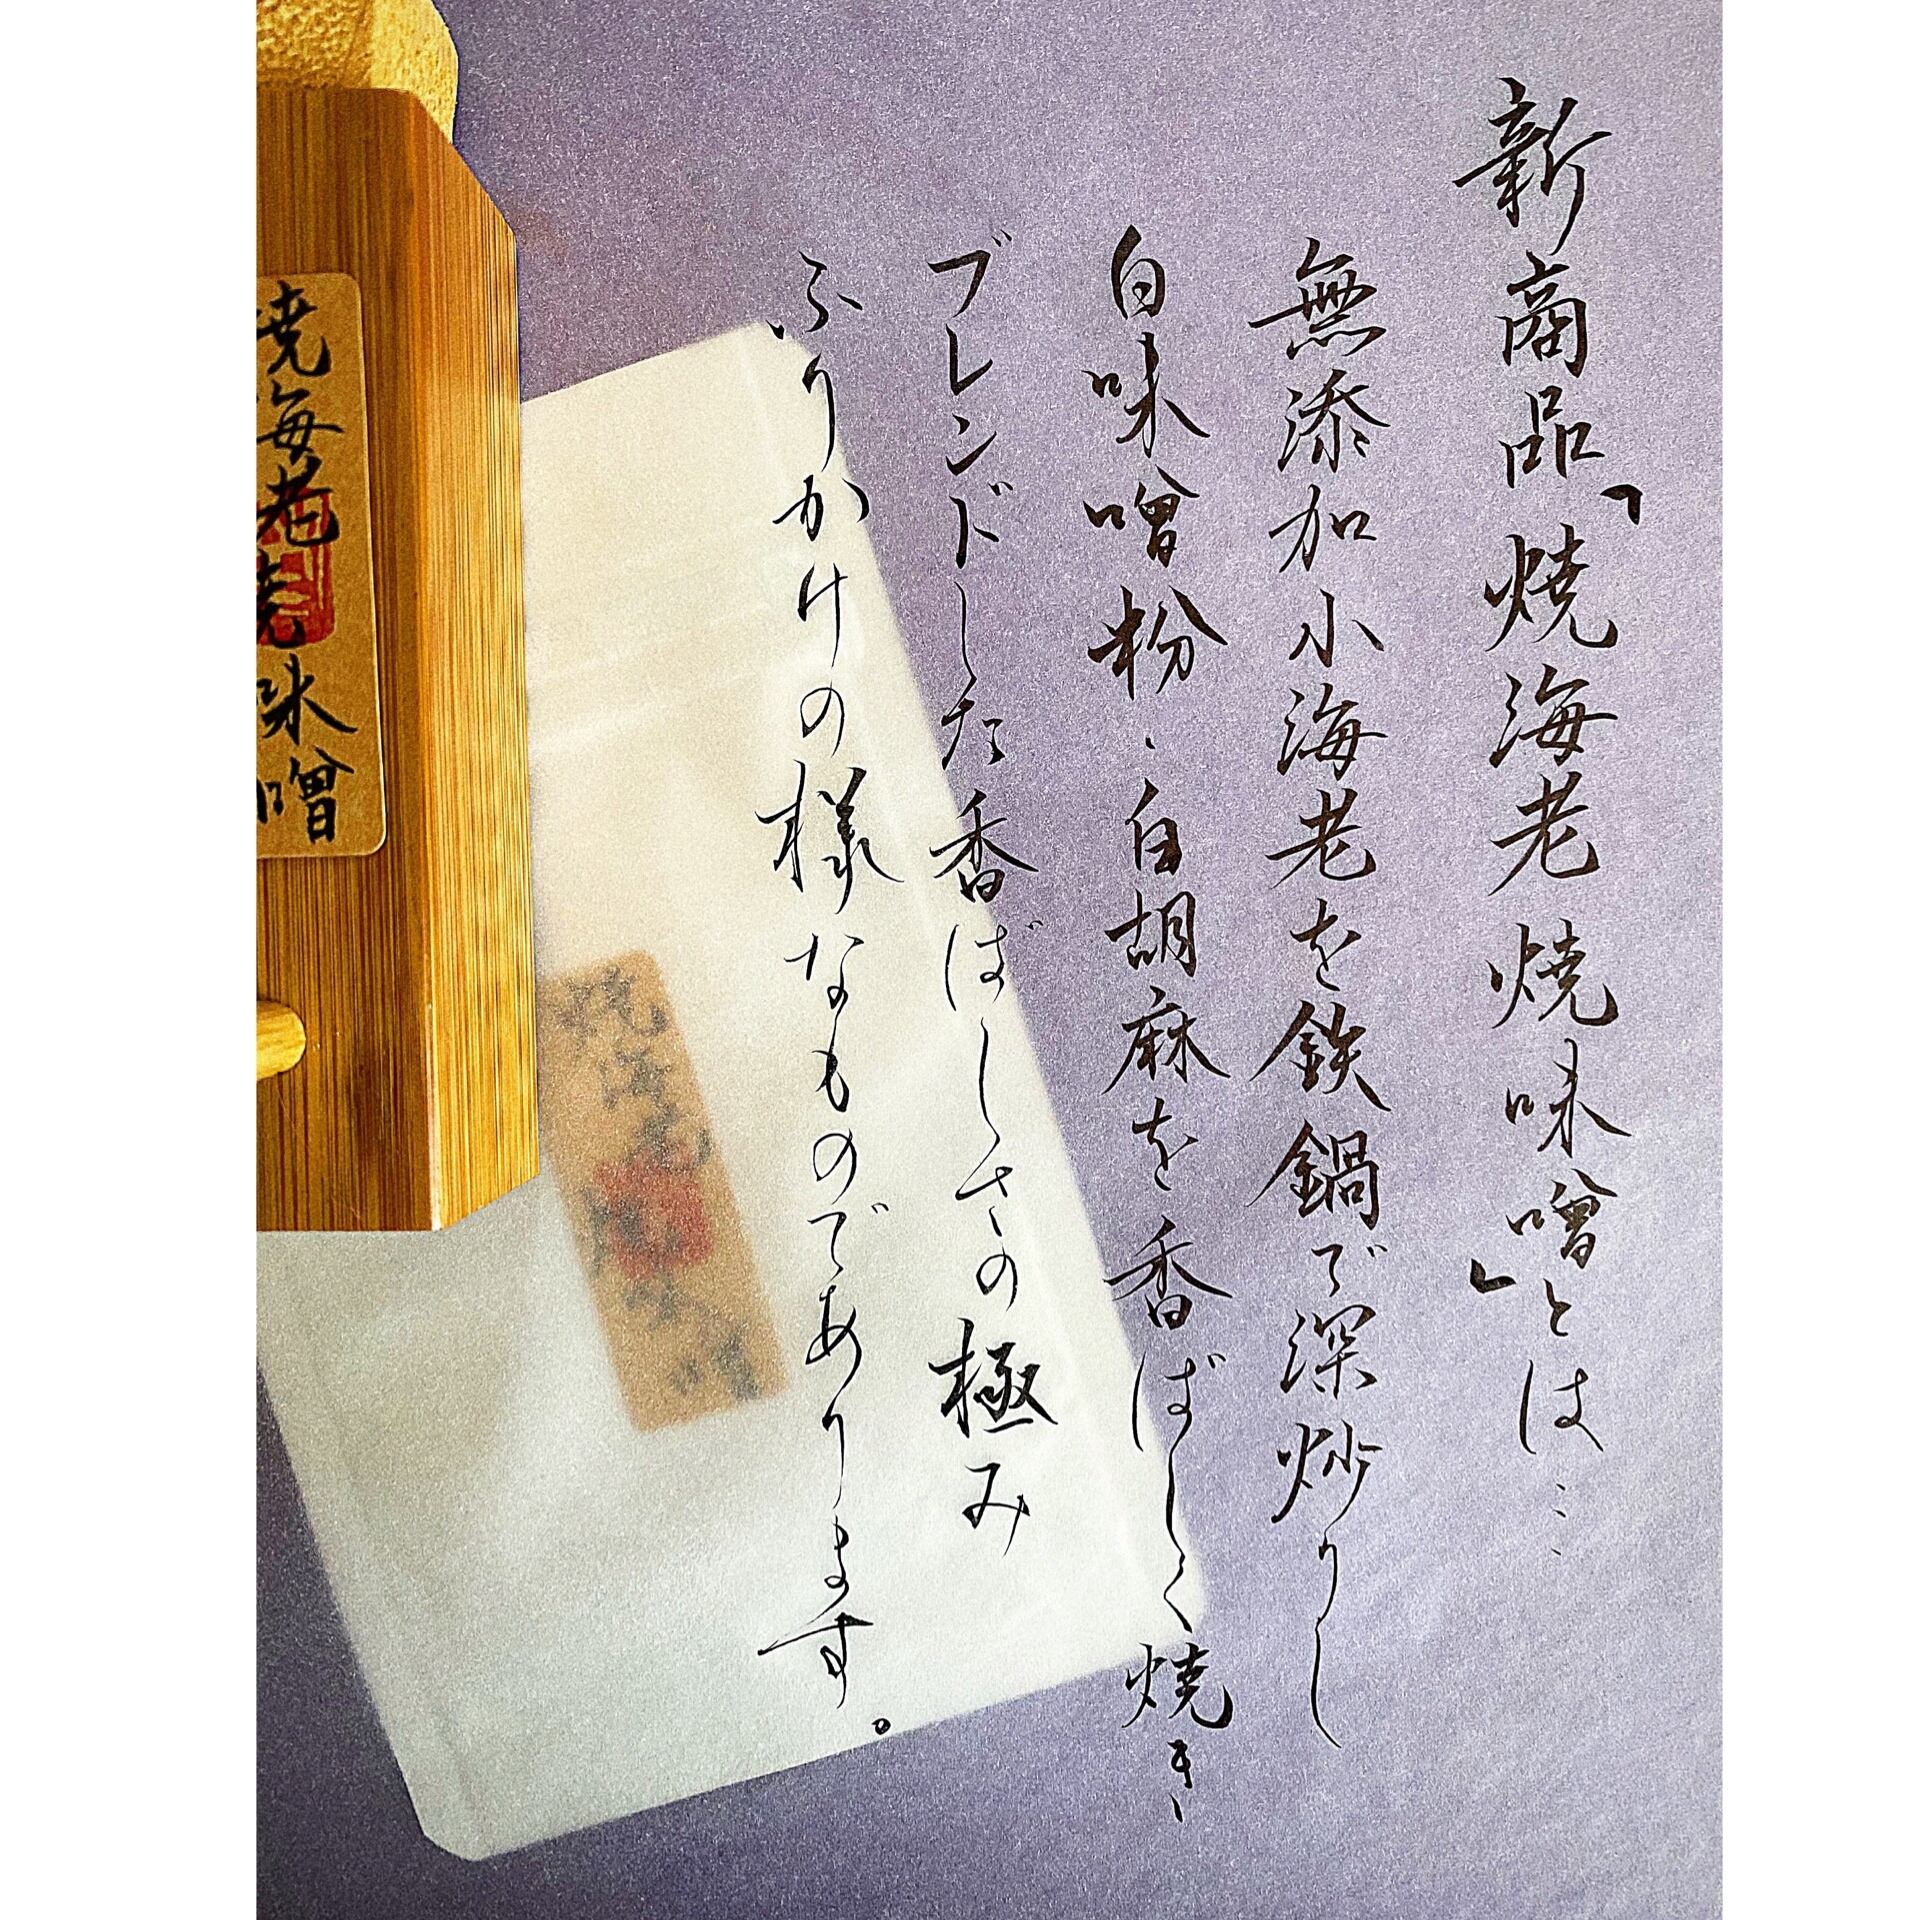 新商品「焼海老焼味噌」とは‥‥
無添加小海老を鉄鍋で深炒りし
白味噌粉・白胡麻を香ばしく焼き、
ブレンドした香ばしさの極み
ふりかけの様なものであります。
焼海老焼味噌
焼海老焼味噌